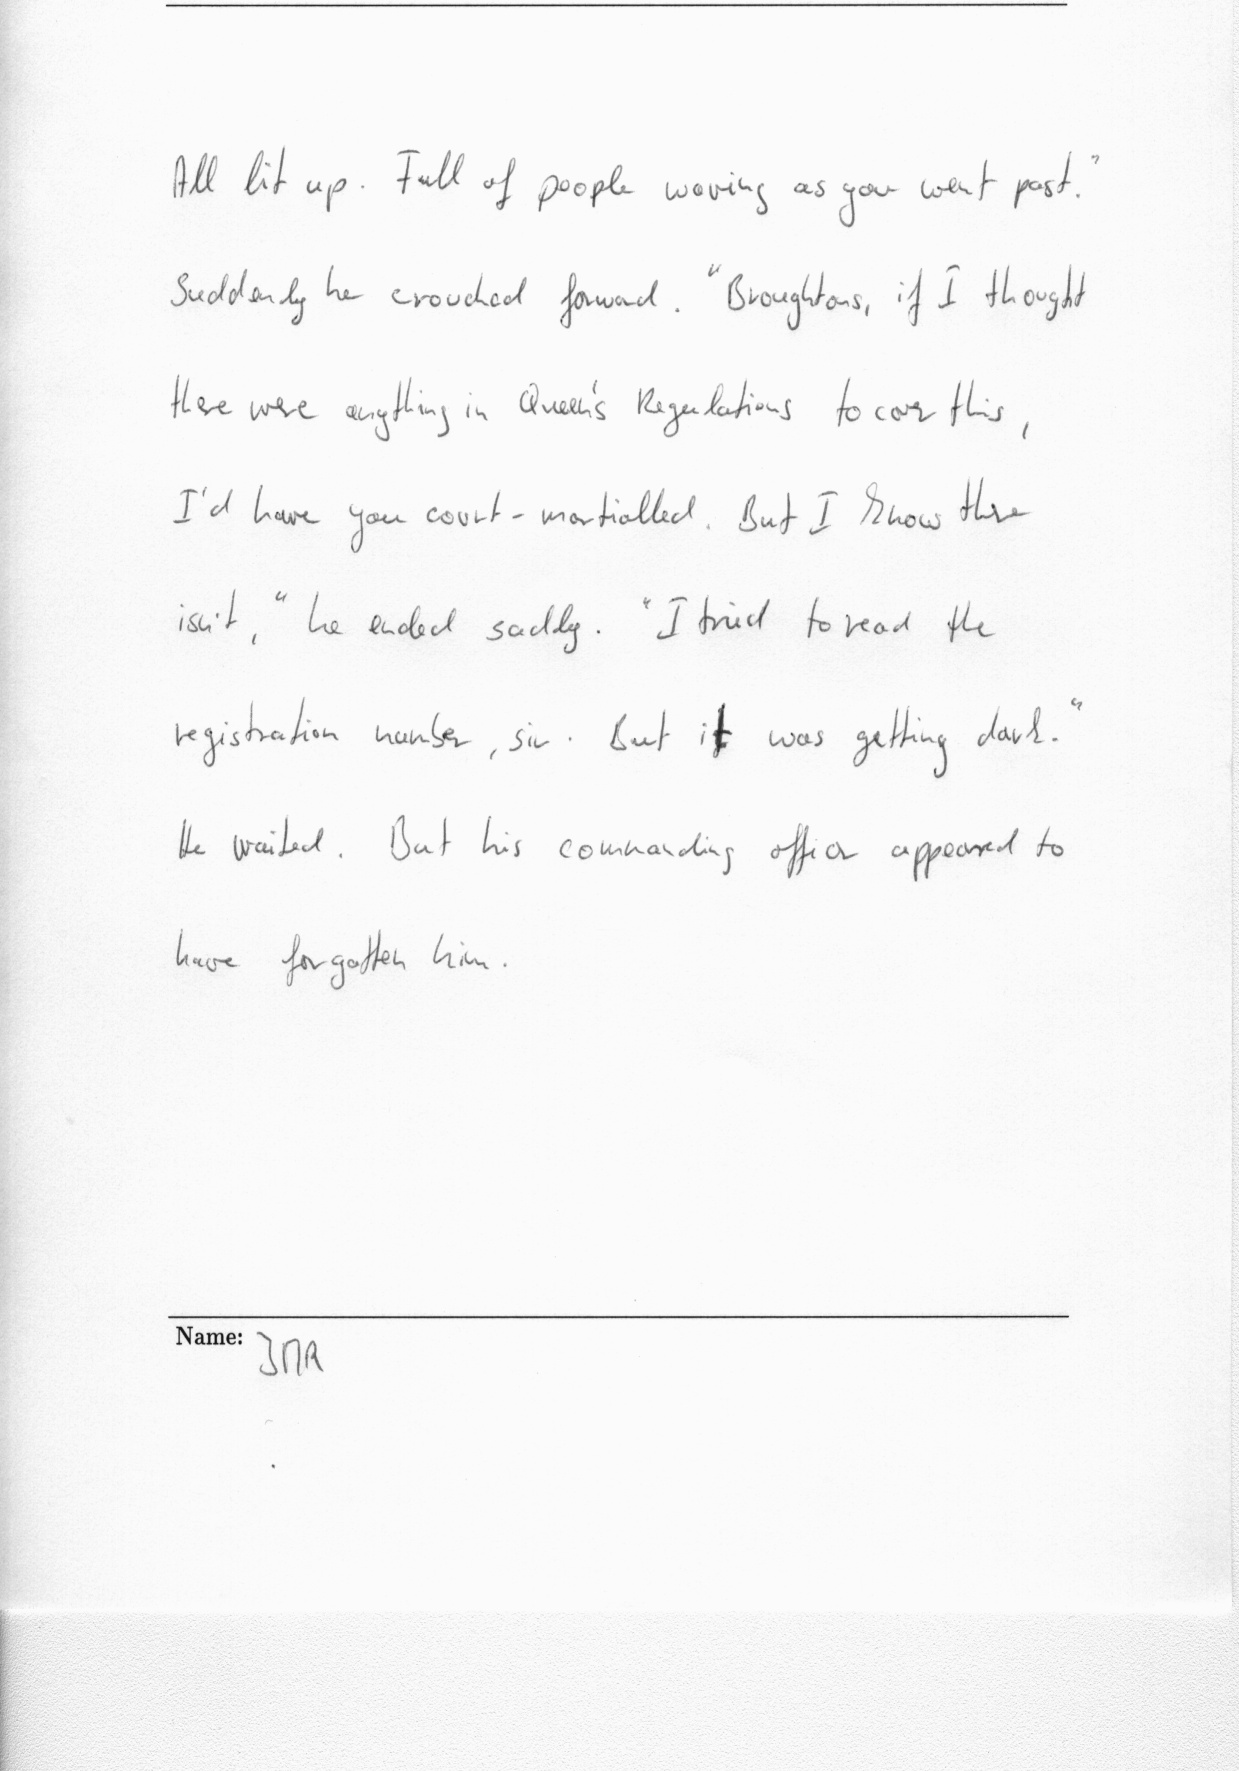 All lit up. Full of people waving as you went past."
Suddenly he crouched forward. "Broughtons, if I thought
there were anything in Queen's Regulations to cover this,
I'd have you court-martialled. But I know there
isn't," he ended sadly. "I tried to read the
registration number, sir. But it was getting dark."
He waited. But his commanding officer appeared to
have forgotten him.
Name: JMR